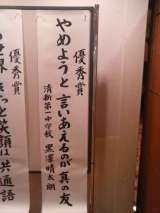 優秀賞
やめようと言いあえるのが真の友
清新第一中学校 黒澤晴太朗
優秀賞
世界きっと笑顔は共通語